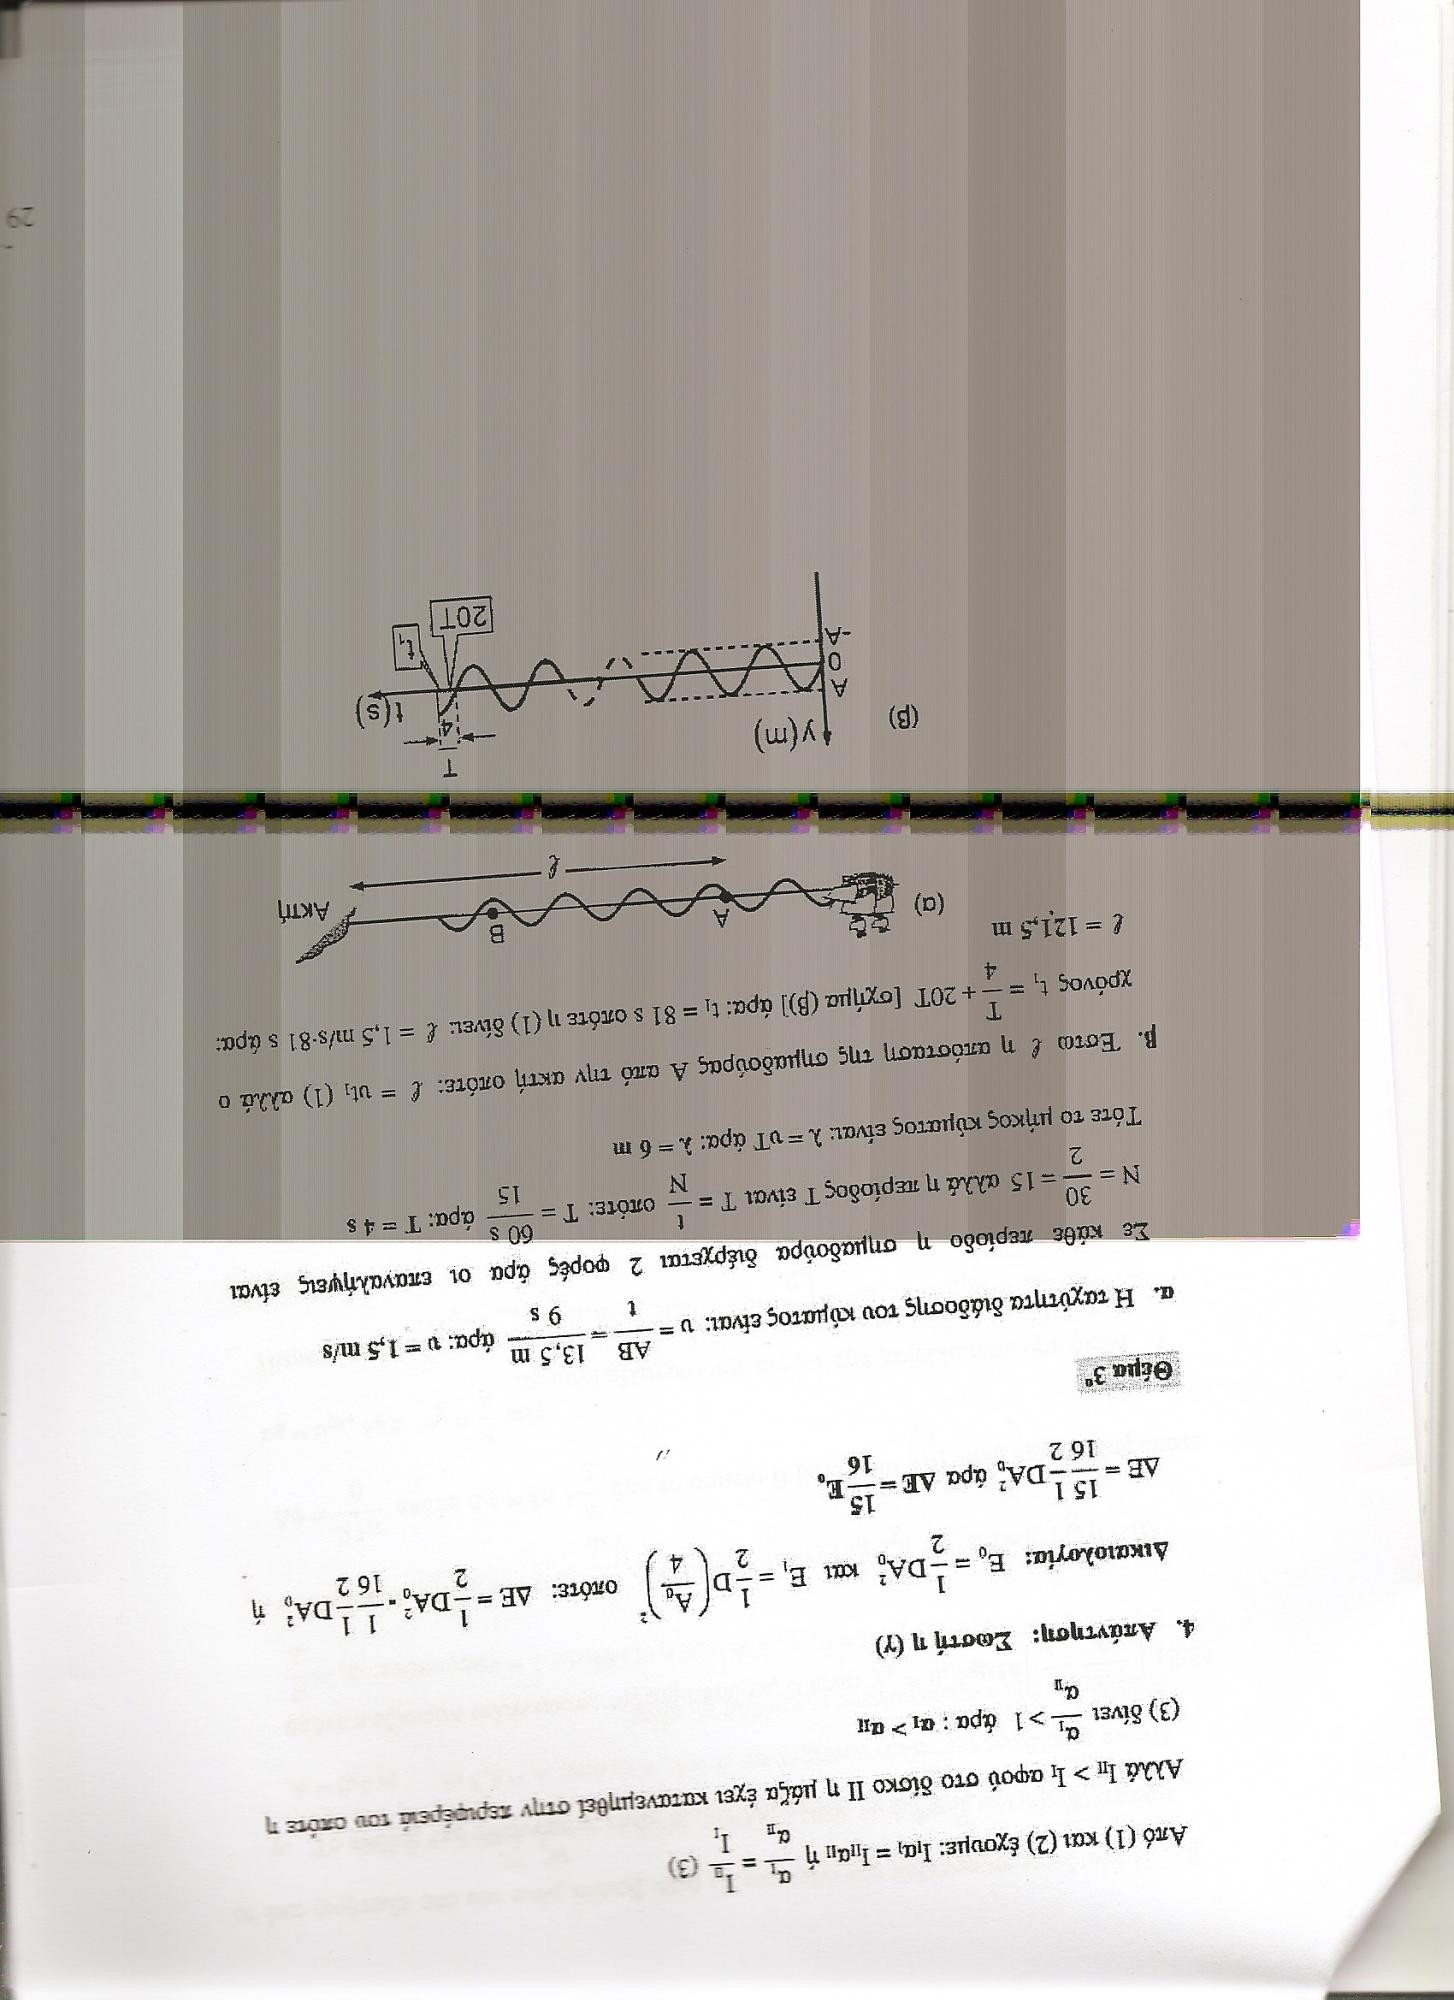 Από (1) και (2) έχουμε: I_Iα_I = I_IIα_II ή α_I/α_II = I_II/I_I (3)
Αλλά I_II > I_I αφού στο δίσκο II η μάζα έχει κατανεμηθεί στην περιφέρειά του οπότε η
(3) δίνει α_I/α_II > 1 άρα : α_I > α_II
4. Απάντηση: Σωστή η (γ)
Δικαιολογία: E₀ = 1/2 DA₀² και E₁ = 1/2 D(A₀/4)² οπότε: ΔE = 1/2 DA₀² - 1/16 1/2 DA₀² ή
ΔE = 15/16 1/2 DA₀² άρα ΔE = 15/16 E₀
Θέμα 3ο
α. Η ταχύτητα διάδοσης του κύματος είναι: υ = AB/t = 13,5 m/9 s άρα: υ = 1,5 m/s
Σε κάθε περίοδο η σημαδούρα διέρχεται 2 φορές άρα οι επαναλήψεις είναι
N = 30/2 = 15 αλλά η περίοδος T είναι T = t/N οπότε: T = 60 s/15 άρα: T = 4 s
Τότε το μήκος κύματος είναι: λ = υT άρα: λ = 6 m
β. Έστω ℓ η απόσταση της σημαδούρας A από την ακτή οπότε: ℓ = υt₁ (1) αλλά ο
χρόνος t₁ = T/4 + 20T [σχήμα (β)] άρα: t₁ = 81 s οπότε η (1) δίνει: ℓ = 1,5 m/s·81 s άρα:
ℓ = 121,5 m
(α)
A
B
Ακτή
ℓ
(β)
y(m)
T/4
t(s)
A
0
-A
20T
t₁
29